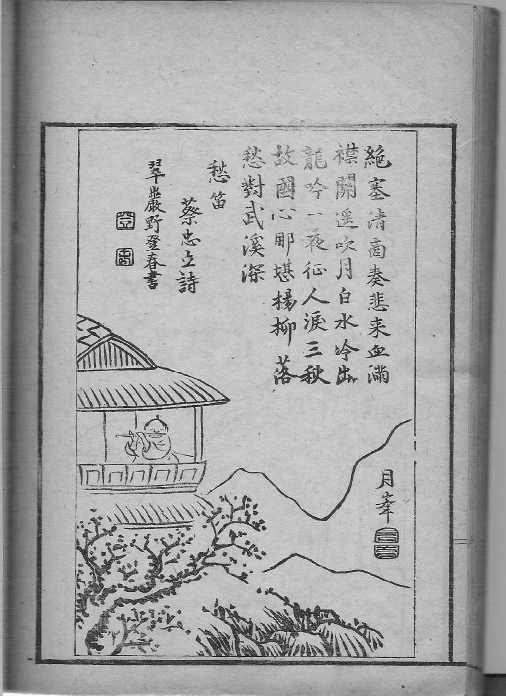 絶塞清商奏悲来血滿
襟關遥吹月白水吟出
龍吟一夜征人淚三秋
故國心那堪楊柳落
愁對武溪深
愁笛
蔡忠立詩
翠巖野登春書
月峯